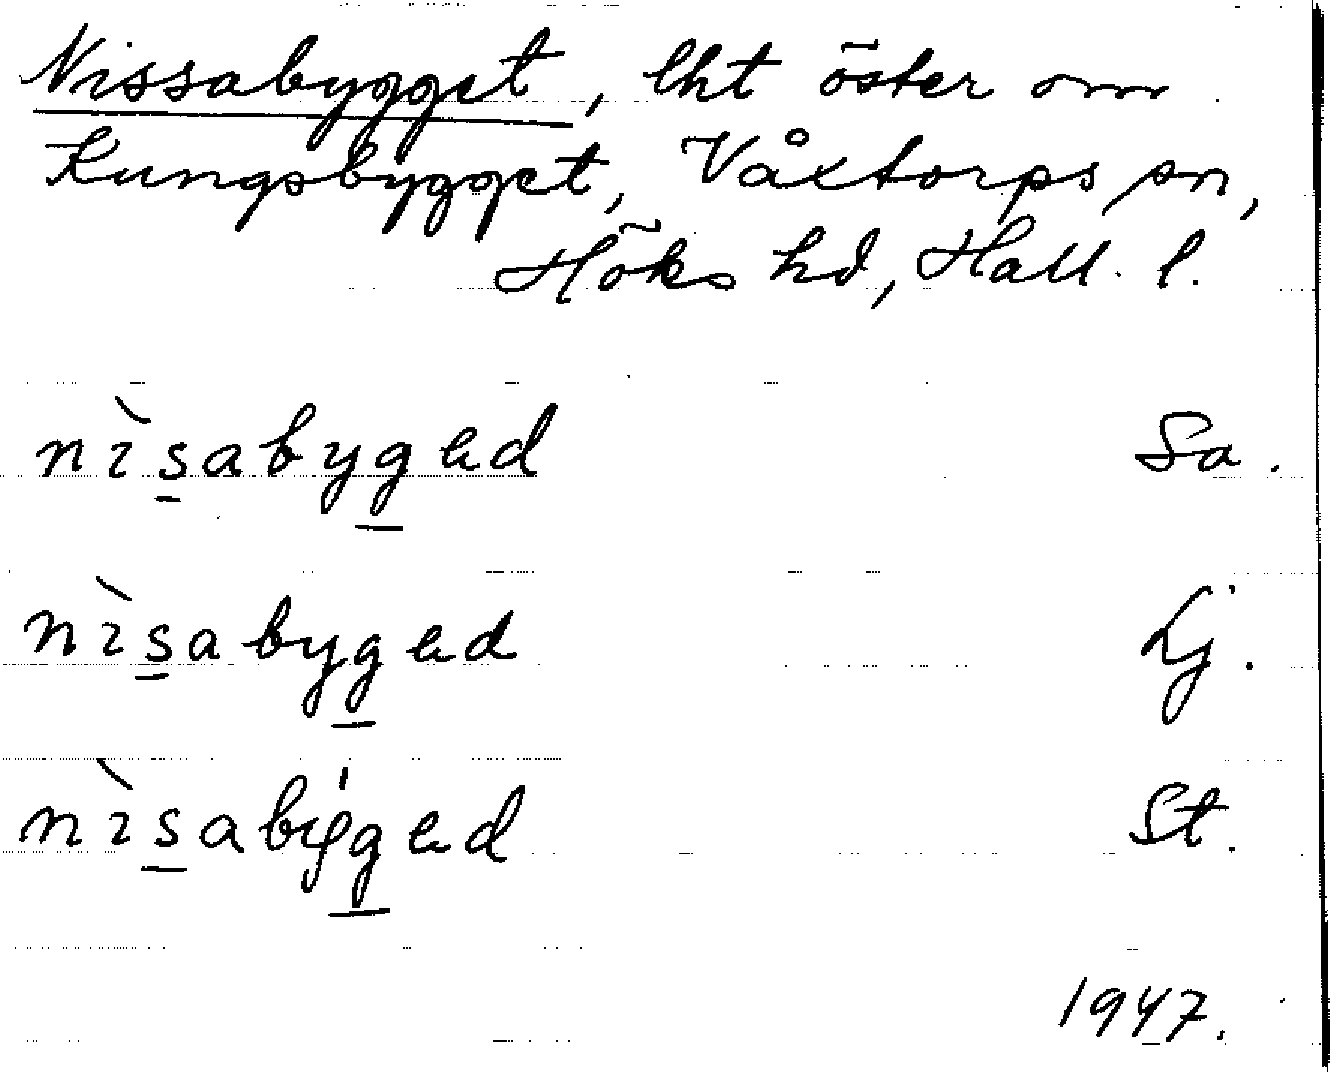 Nissabygget, lht öster om
Kungsbygget, Våxtorps sn,
Höks hd, Hall. l.
nìsabygəd Sa.
nìsabygəd Lj.
nìsabýgəd St.
1947.